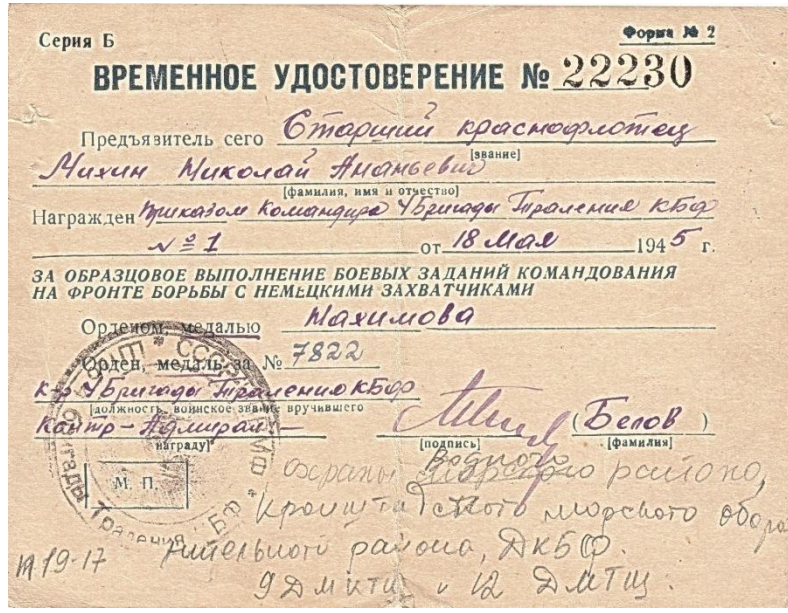 Серия Б
Форма № 2
ВРЕМЕННОЕ УДОСТОВЕРЕНИЕ № 22230
Предъявитель сего Старший краснофлотец
[звание]
Михин Николай Ананьевич
[фамилия, имя и отчество]
Награжден Приказом Командира 4 Бригады Траления КБФ
№ 1 от 18 Мая 1945 г.
ЗА ОБРАЗЦОВОЕ ВЫПОЛНЕНИЕ БОЕВЫХ ЗАДАНИЙ КОМАНДОВАНИЯ
НА ФРОНТЕ БОРЬБЫ С НЕМЕЦКИМИ ЗАХВАТЧИКАМИ
Орденом, медалью Нахимова
Орден, медаль за № 7822
К-р 4 Бригады Траления КБФ
[должность, воинское звание вручившего
Контр-Адмирал -
награду]
[подпись]
(Белов)
[фамилия]
М. П.
СССР НКВМФ
Бригады Траления КБФ
охраны водного района,
Кронштадтского морского оборо
нительного района, ДКБФ.
19-17
9 ДМКТЩ и 12 ДМТЩ.